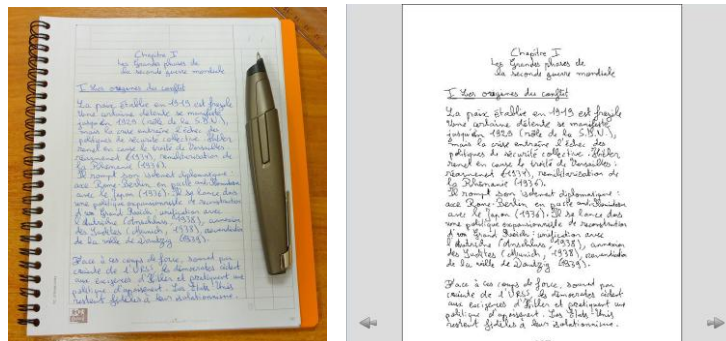 Chapitre I
Les Grandes phases de
la seconde guerre mondiale
I Les origines du conflit
La paix établie en 1919 est fragile
Une certaine détente se manifeste
jusqu'en 1929 (rôle de la S.D.N.),
mais la crise entraîne l'échec des
politiques de sécurité collective. Hitler
remet en cause le traité de Versailles :
réarmement (1934), remilitarisation de
la Rhénanie (1936).
Il rompt son isolement diplomatique :
axe Rome-Berlin, en pacte
avec le Japon (1936). Il se lance dans
une politique expansionniste de reconstruction
d'un Grand Reich : unification avec
l'Autriche (Anschluss, 1938), annexion
des Sudètes (Munich, 1938), revendication
de la ville de Dantzig (1939).
Face à ces coups de force, soumis par
crainte de l'URSS, les démocraties cèdent
aux exigences d'Hitler et pratiquent une
politique d'apaisement. Les États-Unis
restent fidèles à leur isolationnisme.
Chapitre I
Les Grandes phases de
la seconde guerre mondiale
I Les origines du conflit
La paix établie en 1919 est fragile
Une certaine détente se manifeste
jusqu'en 1929 (rôle de la S.D.N.),
mais la crise entraîne l'échec des
politiques de sécurité collective. Hitler
remet en cause le traité de Versailles :
réarmement (1934), remilitarisation de
la Rhénanie (1936).
Il rompt son isolement diplomatique :
axe Rome-Berlin, en pacte
avec le Japon (1936). Il se lance dans
une politique expansionniste de reconstruction
d'un Grand Reich : unification avec
l'Autriche (Anschluss, 1938), annexion
des Sudètes (Munich, 1938), revendication
de la ville de Dantzig (1939).
Face à ces coups de force, soumis par
crainte de l'URSS, les démocraties cèdent
aux exigences d'Hitler et pratiquent une
politique d'apaisement. Les États-Unis
restent fidèles à leur isolationnisme.